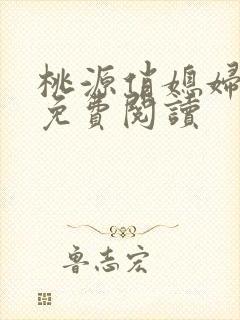 桃源俏媳婦
免費閱讀
魯志宏